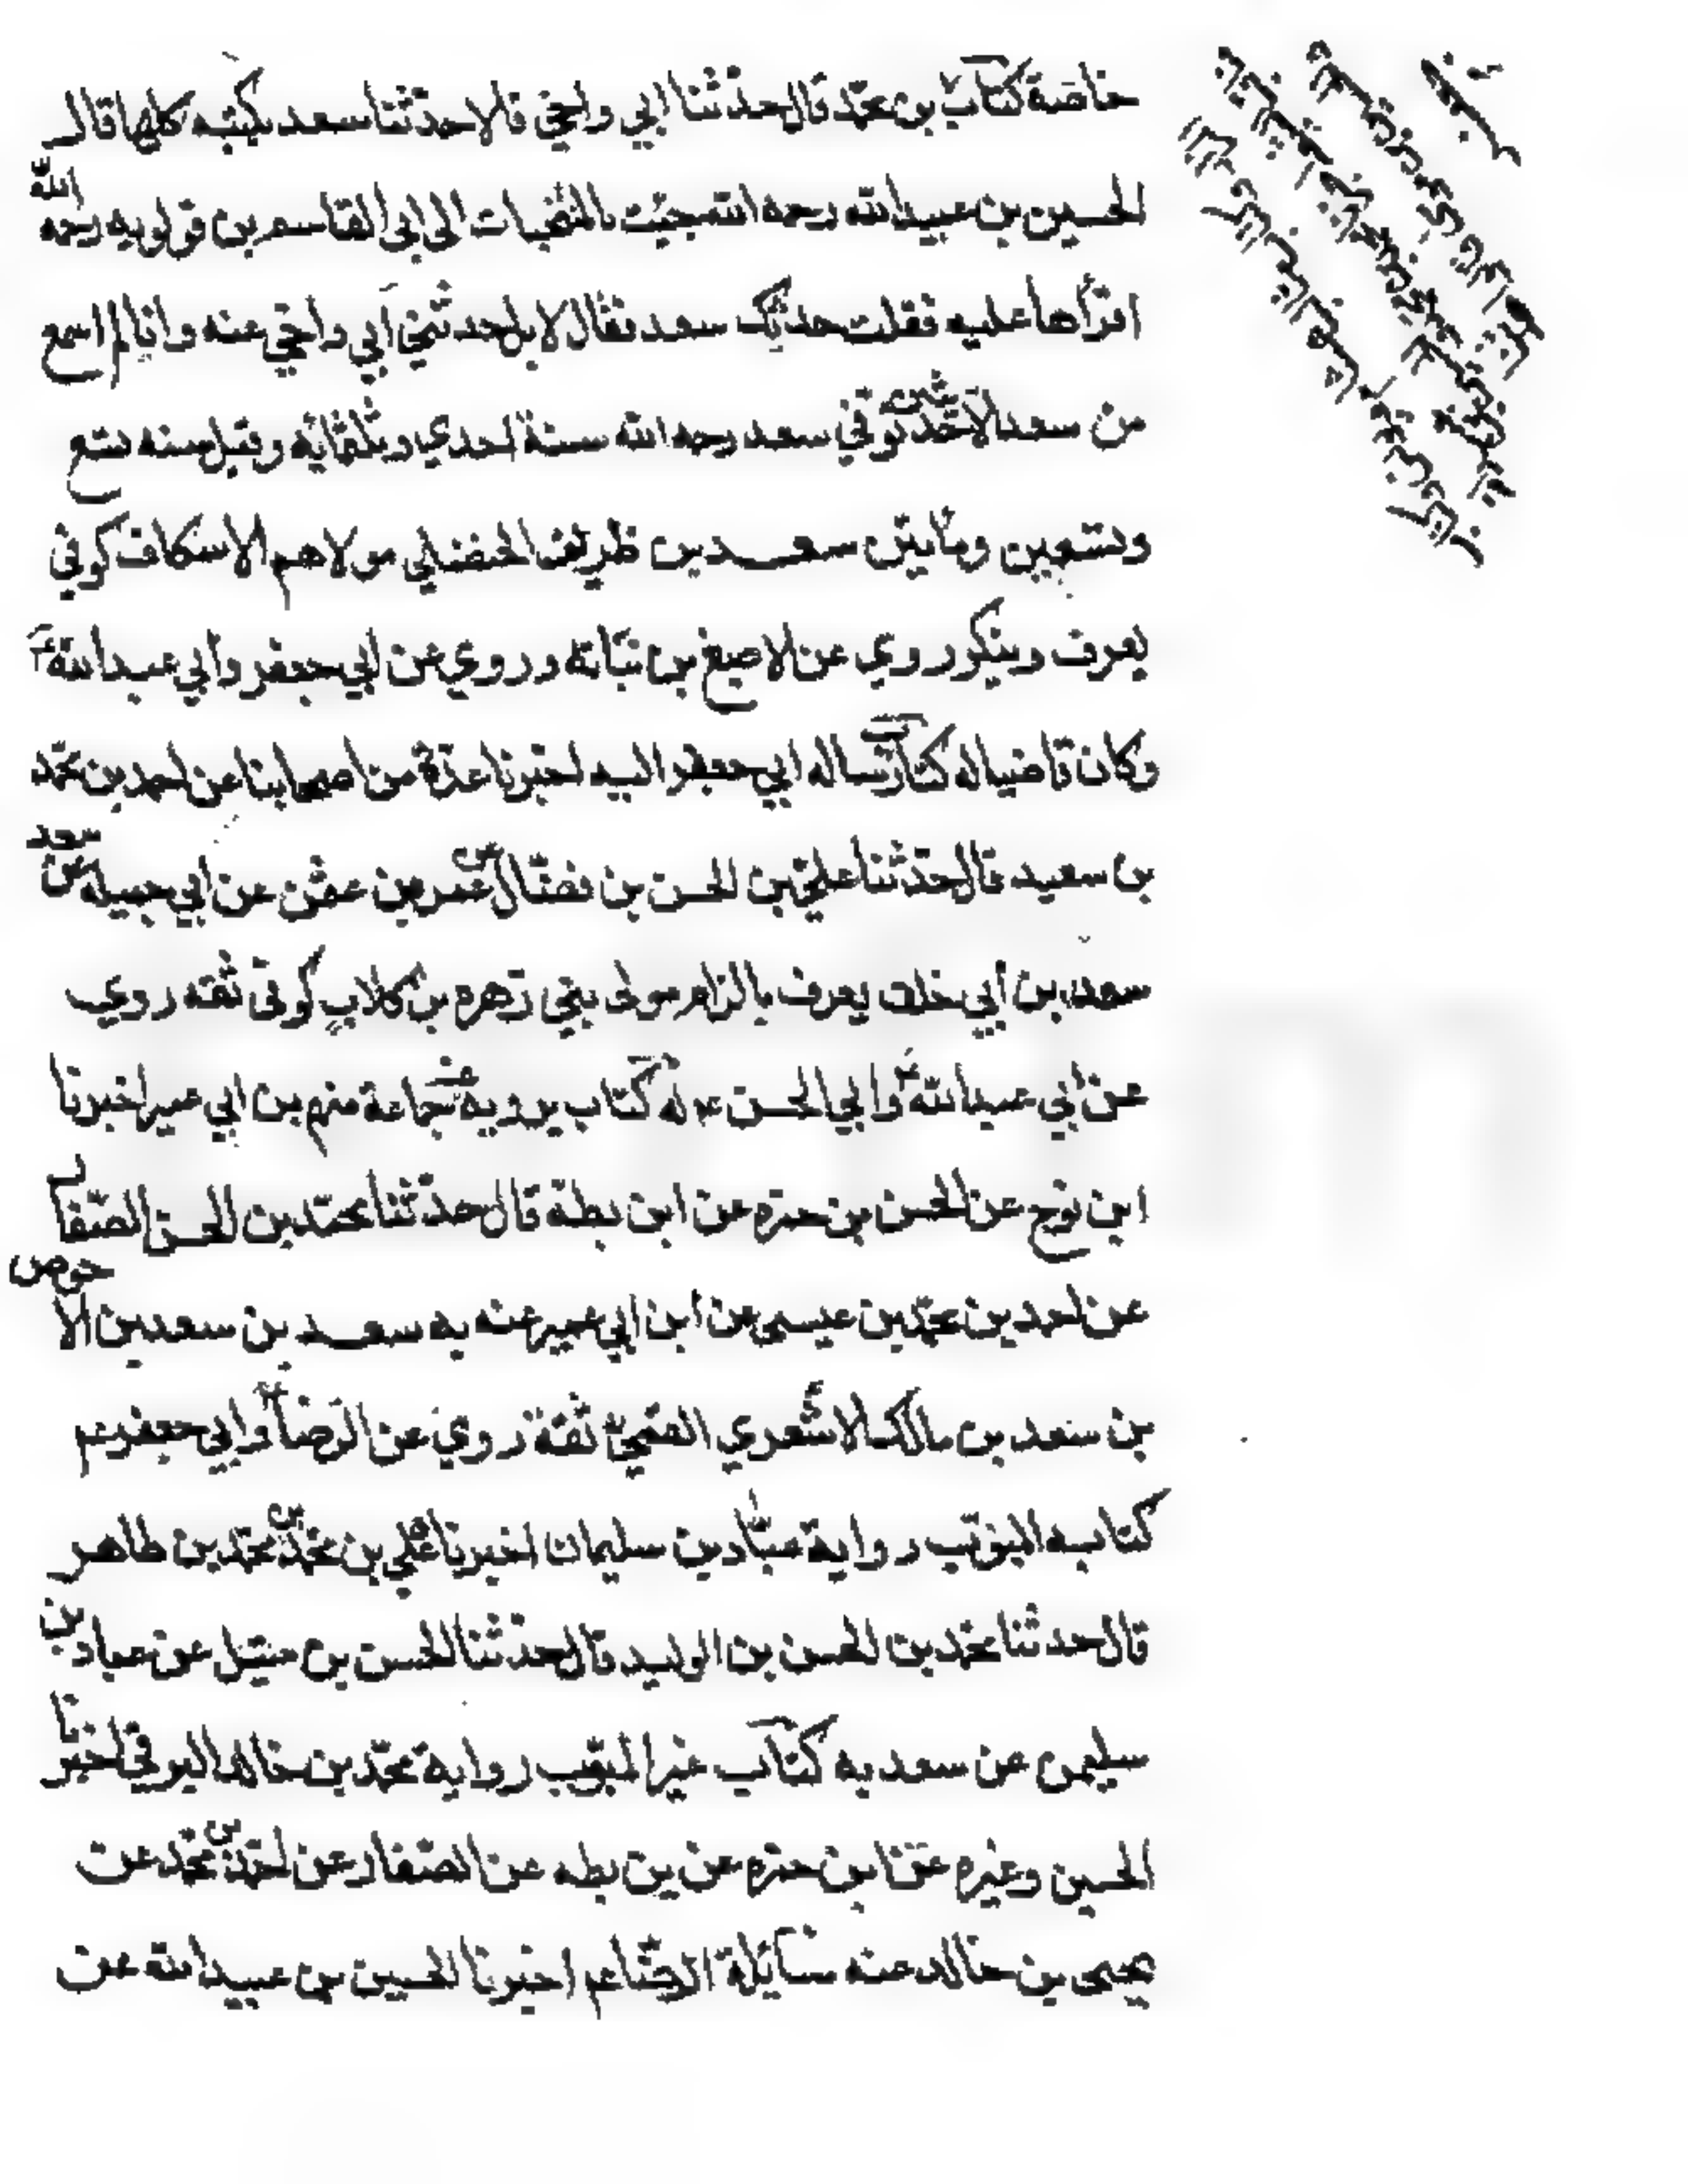 خاصة كتاب بن محمد قال حدثنا ابي واخي قالا حدثنا سعد بكتبه كلها قال
الحسين بن عبيدالله رحمه الله جئت بالمنتخبات الى ابي القاسم بن قولويه رحمه الله
اقرأها عليه فقلت حدثك سعد فقال لا بل حدثني ابي واخي عنه وانا لم اسمع
من سعد الا حديثين توفي سعد رحمه الله سنة احدي وثلثمائه وقيل سنه تسع
وتسعين ومأتين سعد بن ظريف الحنضلي مولاهم الاسكاف كوفي
يعرف وينكر روي عن لاصبغ بن نباته وروي عن ابي جعفر وابي عبدالله
وكان قاضيا له كتاب رساله ابي جعفر اليه اخبرنا عدة من اصحابنا عن احمد بن محمد
بن سعيد قال حدثنا علي بن الحسن بن فضال عن عمر بن عثمن عن ابي جميله عن سعد
سعد بن أبي خلف يعرف بالزام مولى بني زهره بن كلاب كوفى ثقه روي
عن أبي عبدالله وابي الحسن له كتاب يرويه عنه جماعة منهم بن ابي عمير اخبرنا
ابن نوح عن الحسن بن حمزه عن ابن بطة قال حدثنا محمد بن الحسن الصفار
عن احمد بن محمد بن عيسى عن ابن ابي عمير عنه به سعد بن سعد بن الاحوص
بن سعد بن مالك الاشعري القمي ثقة روي عن الرضا وابي جعفر
كتابه المبوب رواية عباد بن سليمان اخبرنا علي بن محمد بن محمد بن طاهر
قال حدثنا محمد بن الحسن بن الوليد قال حدثنا الحسن بن متيل عن عباد بن
سليمن عن سعد به كتاب غير المبوب رواية محمد بن خالد البرقي اخبرنا
الحسين وغيره عن ابن حمزه عن بن بطه عن الصفار عن احمد بن محمد عن
محمد بن خالد عنه مسائله الرضا عم اخبرنا الحسين بن عبيدالله عن